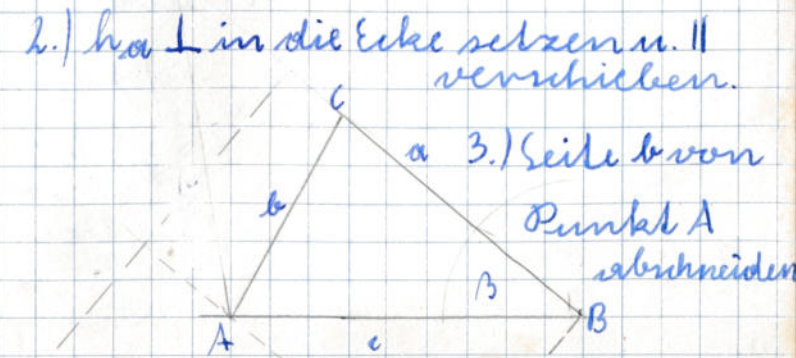 2.) ha ⊥ in die Ecke setzen u. ||
verschieben.
C
a 3.) Seite b von
b
Punkt A
abschneiden
β
A c B